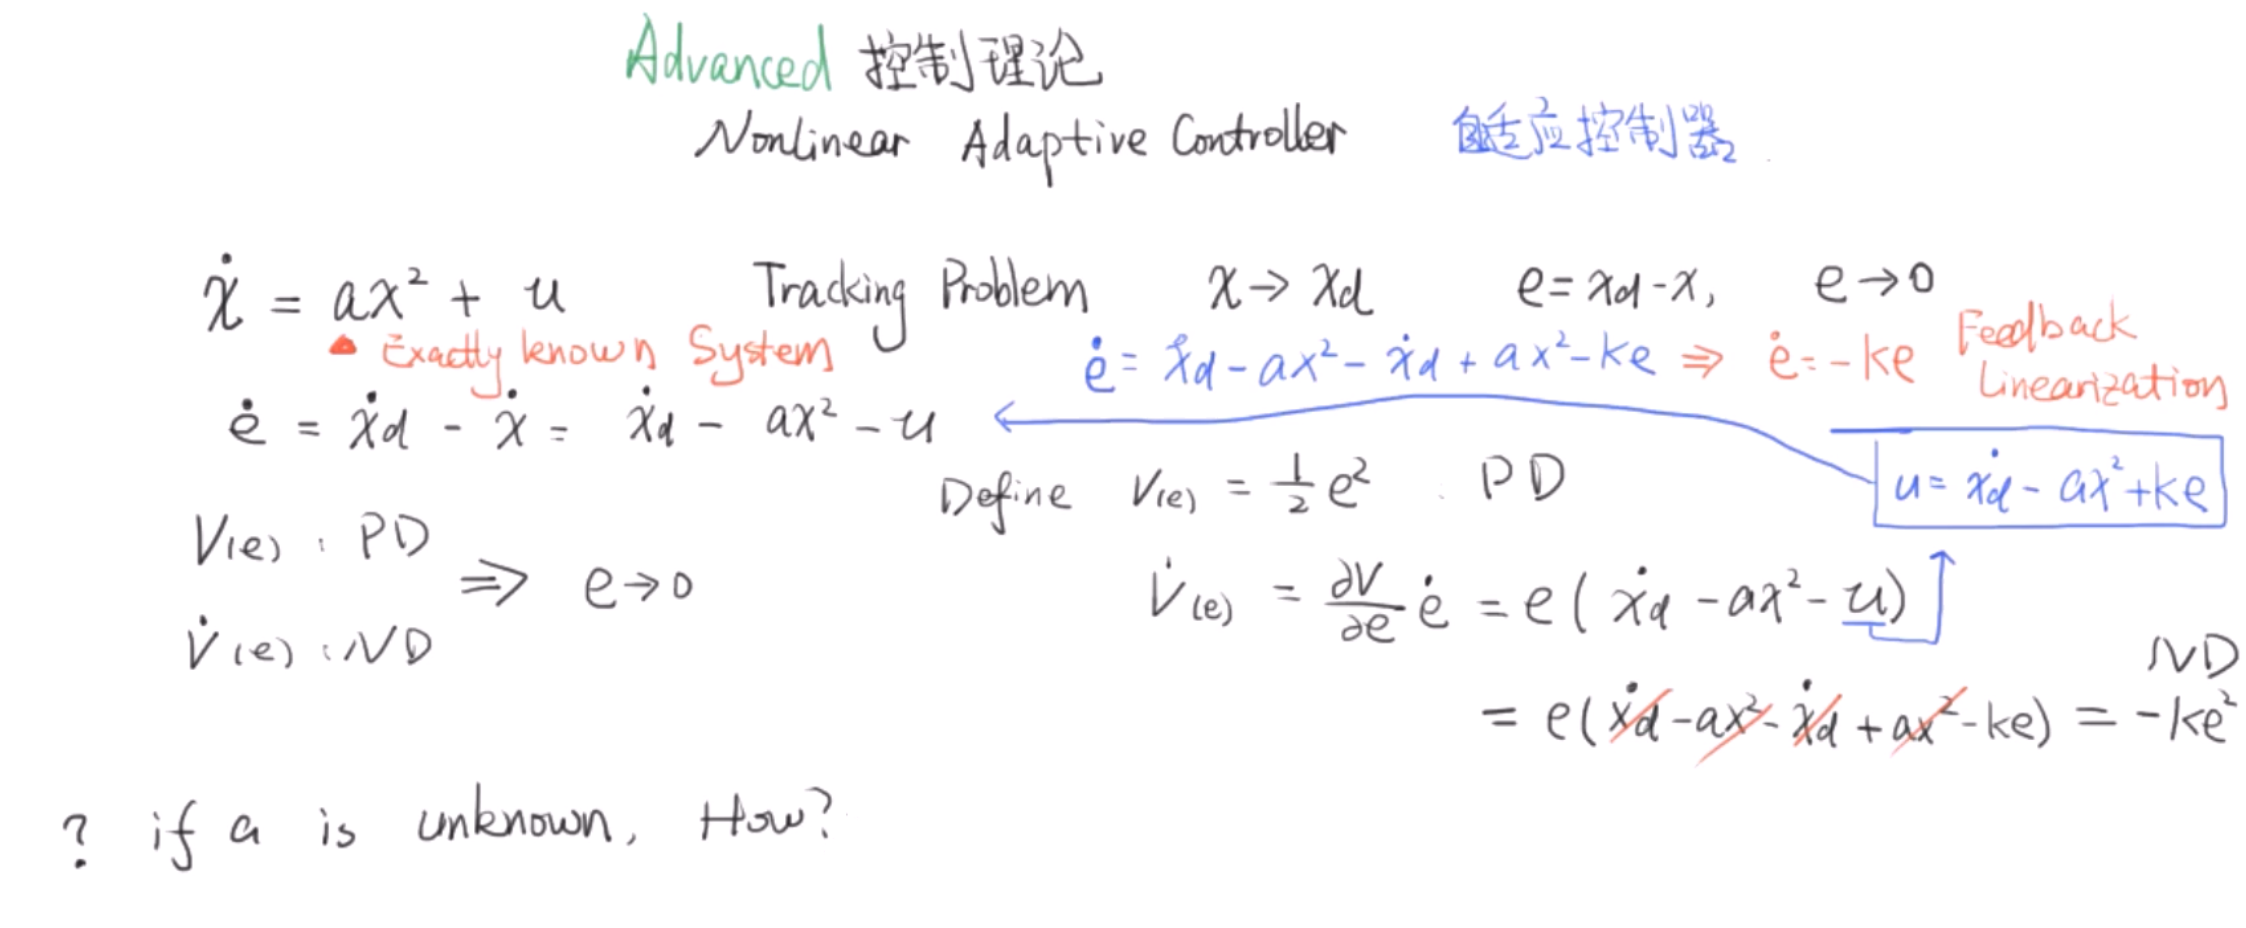 Advanced 控制理论
Nonlinear Adaptive Controller 自适应控制器
ẋ = ax² + u Tracking Problem x → xd e = xd - x, e → 0
Exactly known System ė = ẋd - ax² - ẋd + ax² - ke ⇒ ė = -ke Feedback Linearization
ė = ẋd - ẋ = ẋd - ax² - u
u = ẋd - ax² + ke
Define V(e) = 1/2 e² PD
V(e) : PD
V̇(e) : ND
⇒ e → 0
V̇(e) = ∂V/∂e ė = e( ẋd - ax² - u)
= e(ẋd - ax² - ẋd + ax² - ke) = -ke² ND
? if a is unknown, How?